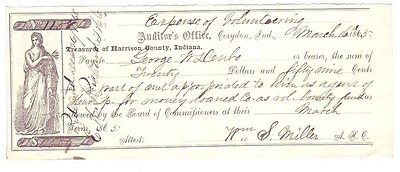 Expense of Volunteering
Auditor's Office, Corydon, Ind., March 16 1865
Treasurer of Harrison County, Indiana,
Pay to George W Denbo or bearer, the sum of
Twenty Dollars and fifty nine Cents
part of amt appropriated to him as agent of
for money loaned Co. as vol. bounty fund as
allowed by the Board of Commissioners at their March
Term, 1865.
Attest: Wm S. Miller A. H. C.